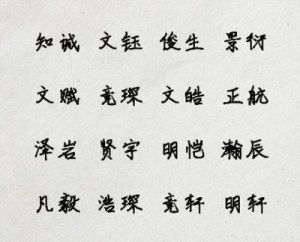 知诚 文钰 俊生 景衍
文赋 竞琛 文皓 正航
泽岩 贤宇 明恺 瀚辰
凡毅 浩琛 竞轩 明轩